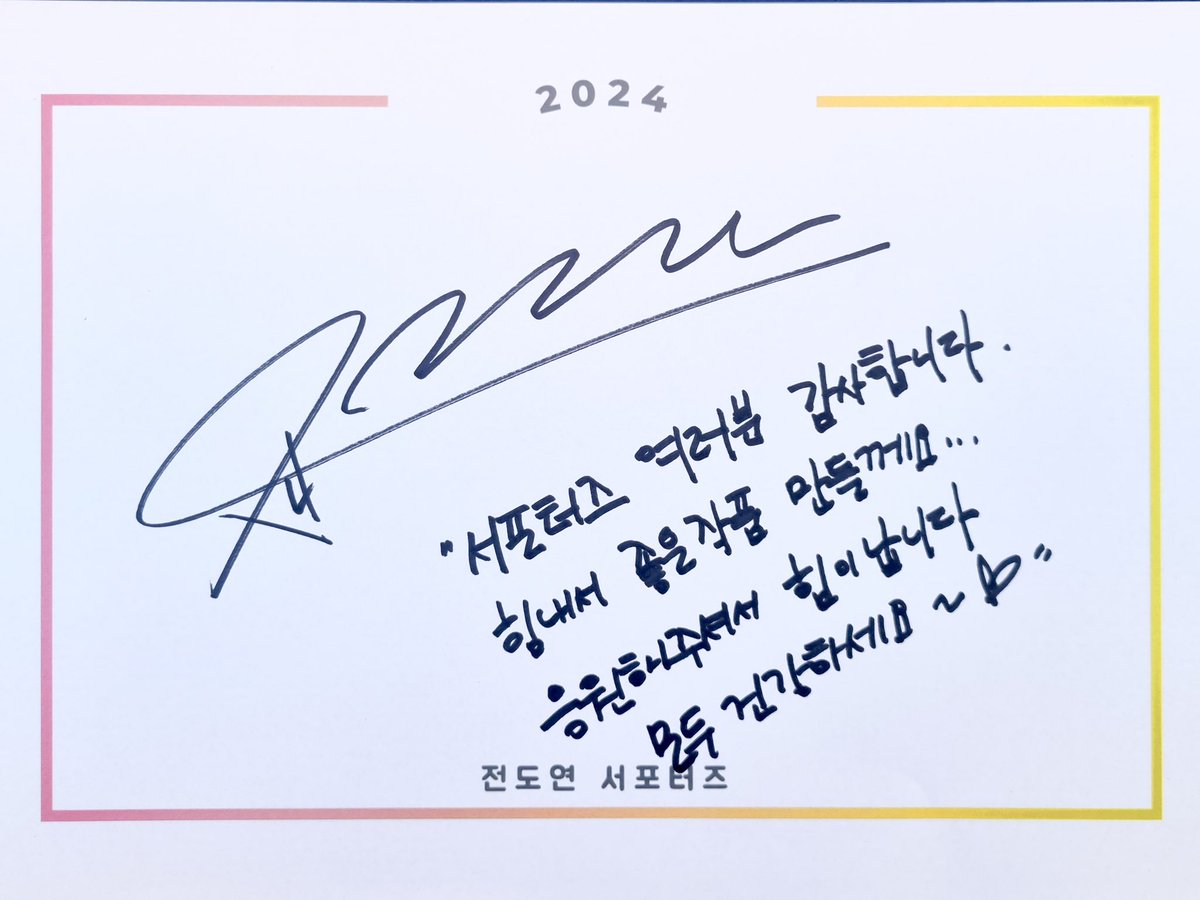 2024
"서포터즈 여러분 감사합니다.
힘내서 좋은작품 만들께요...
응원해주셔서 힘이납니다
모두 건강하세요~♡"
전도연 서포터즈